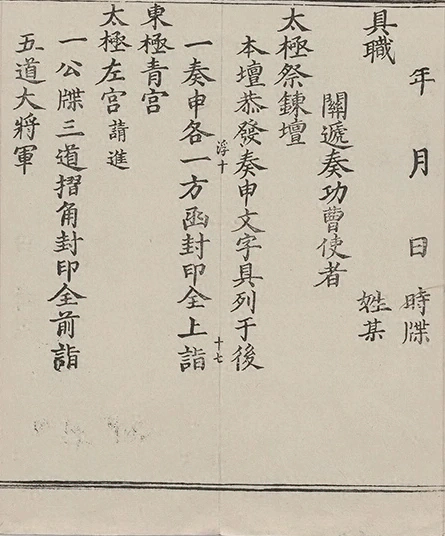 年月日時牒
具職姓某
關遞奏功曹使者
太極祭鍊壇
本壇恭發奏申文字具列于後
浮十
十七
一奏申各一方函封印全上詣
東極青宮
太極左宮請進
一公牒三道摺角封印全前詣
五道大將軍